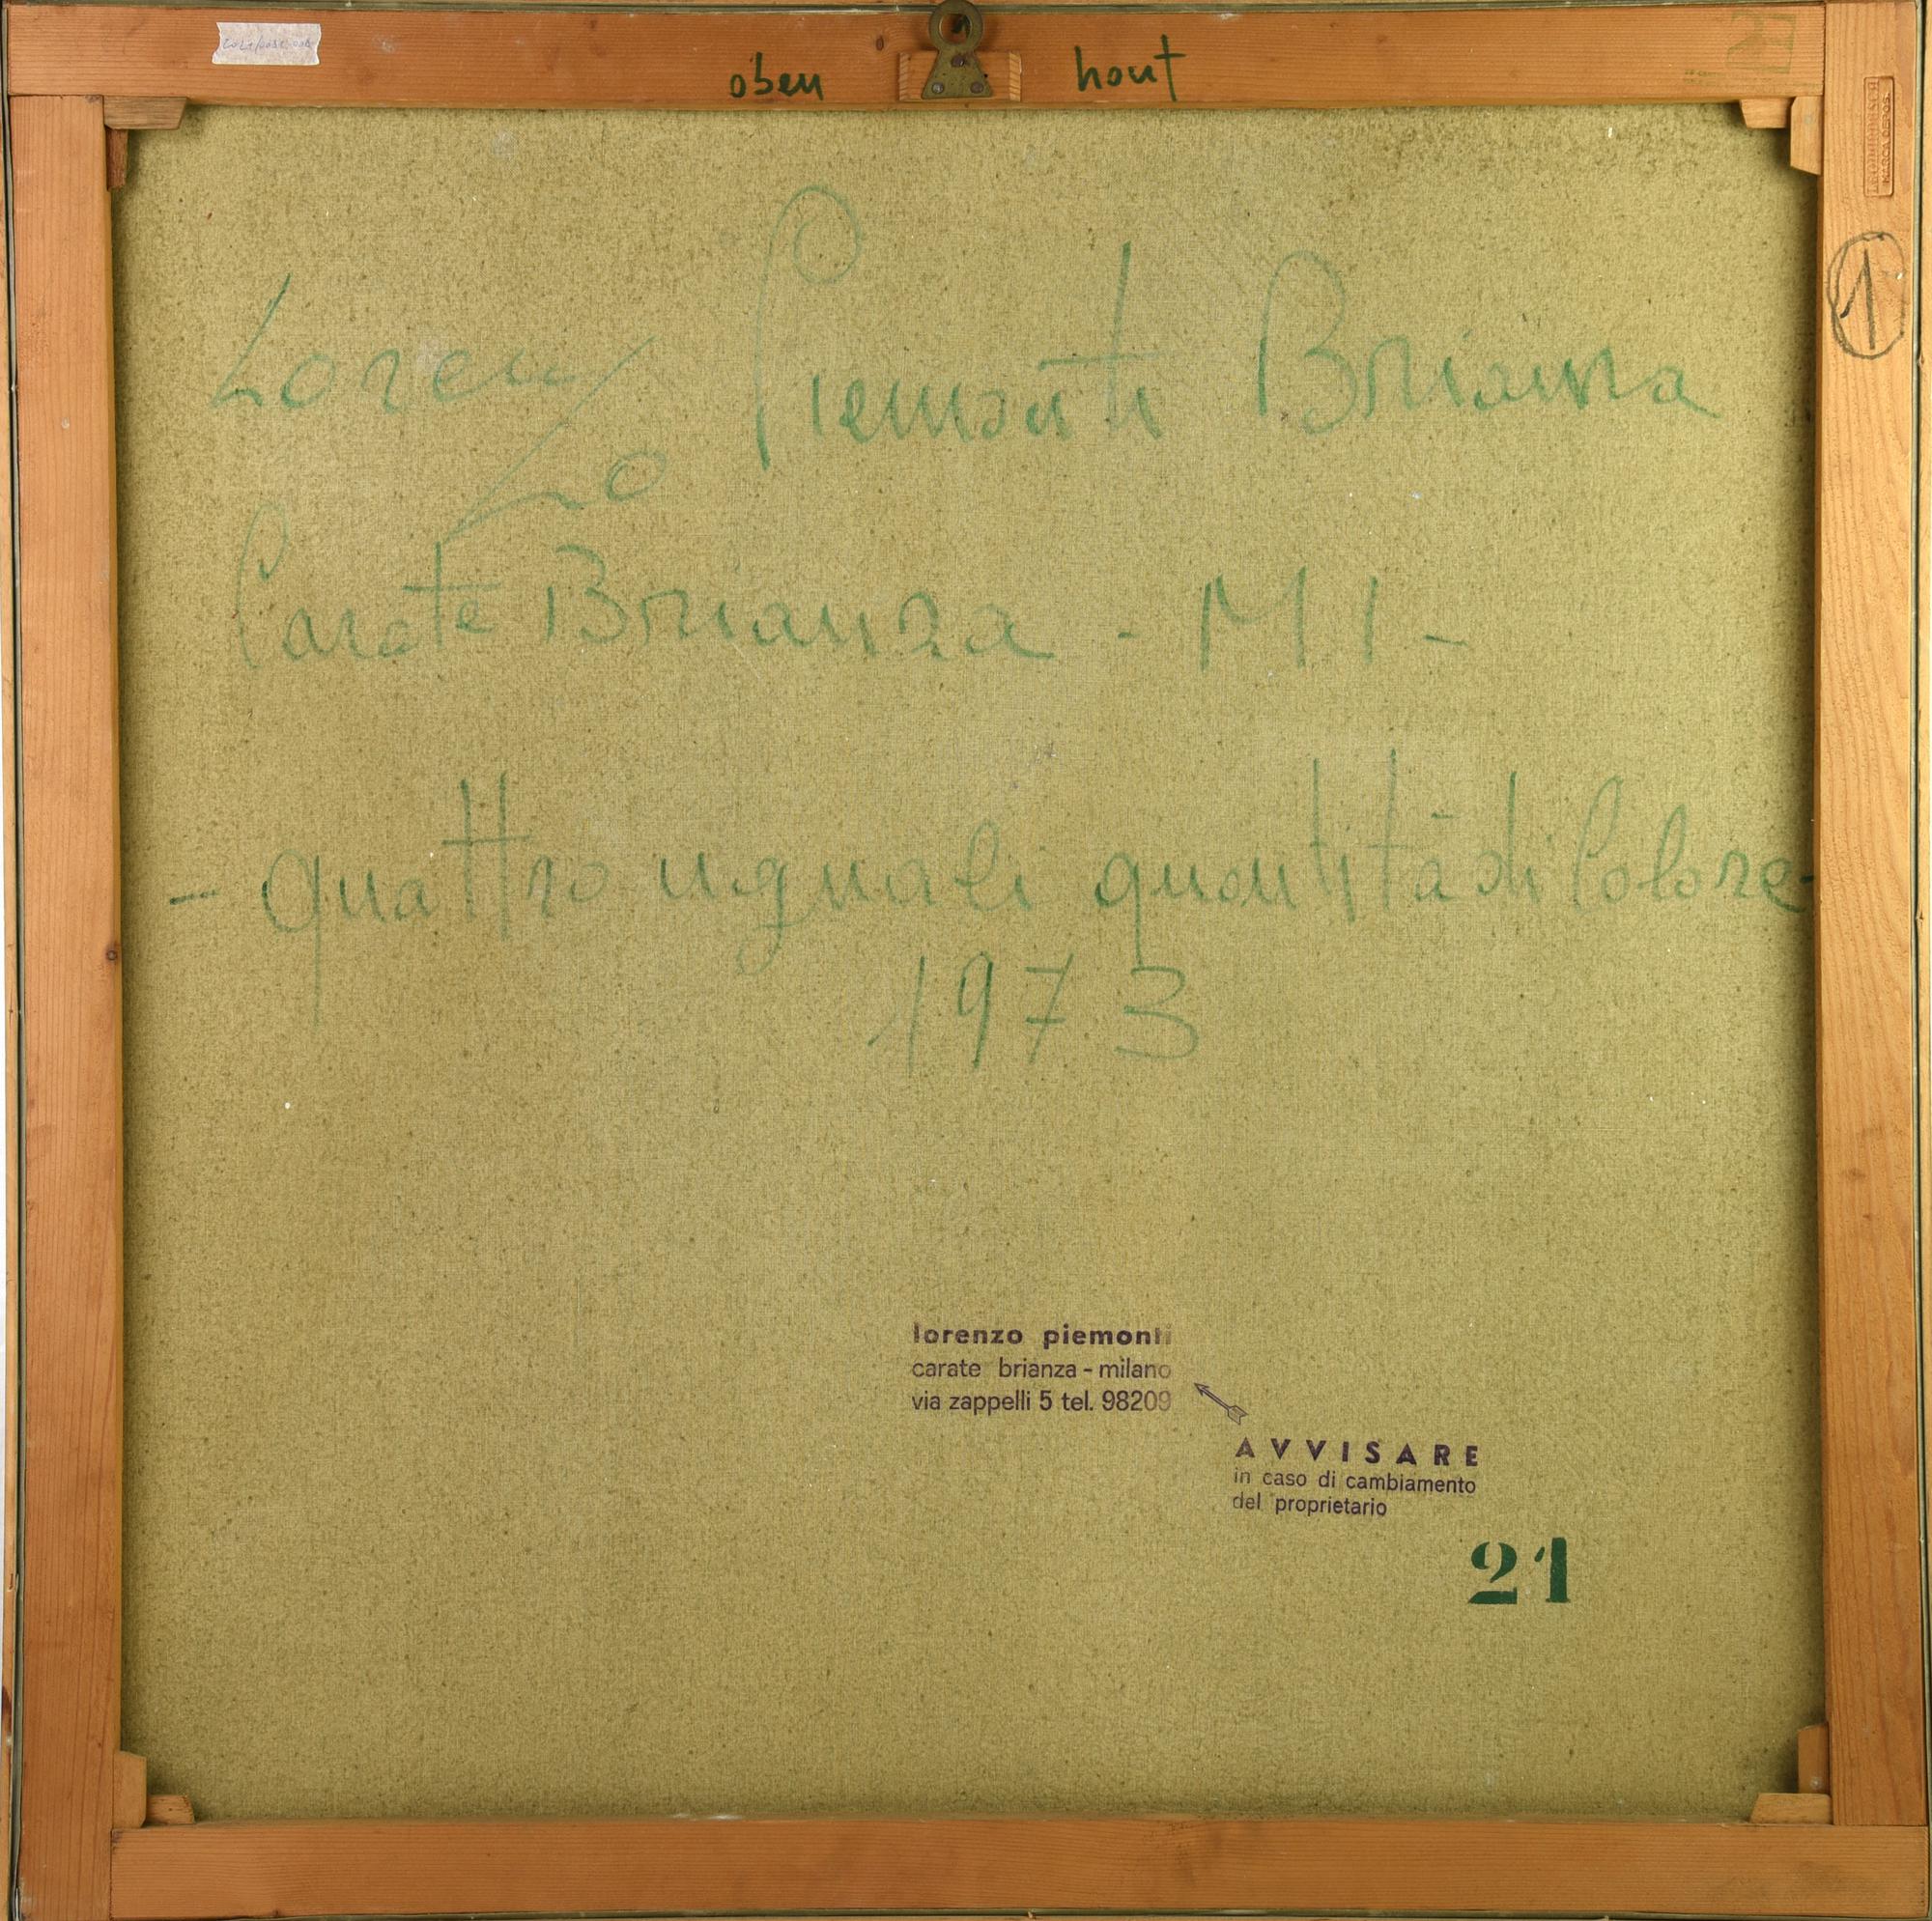 oben hout
1
Lorenzo Piemonti Brianza
Carate Brianza - MI -
- quattro uguali quantità di Colore -
1973
lorenzo piemonti
carate brianza - milano
via zappelli 5 tel. 98209
AVVISARE
in caso di cambiamento
del proprietario
21